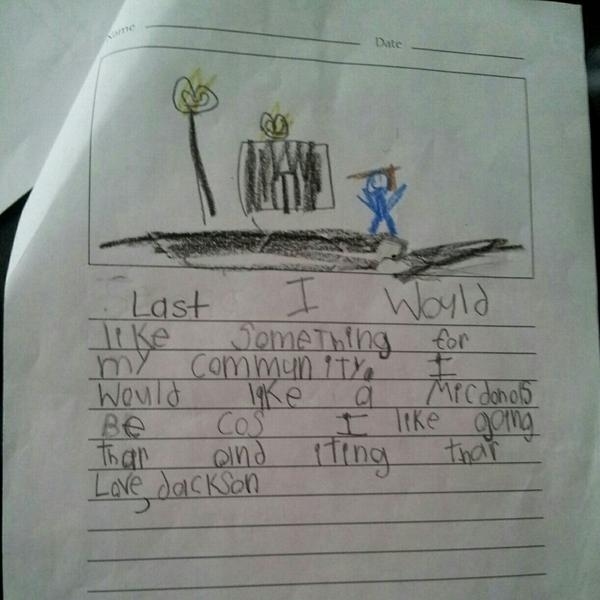 Name Date
Last I Would
like something for
my community. I
Would like a Micdonols
Be cos I like going
thar and iting thar
Love, Jackson